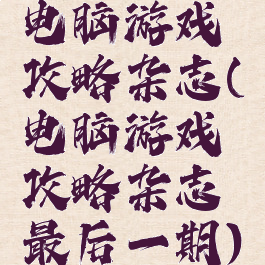 电脑游戏
攻略杂志(
电脑游戏
攻略杂志
最后一期)